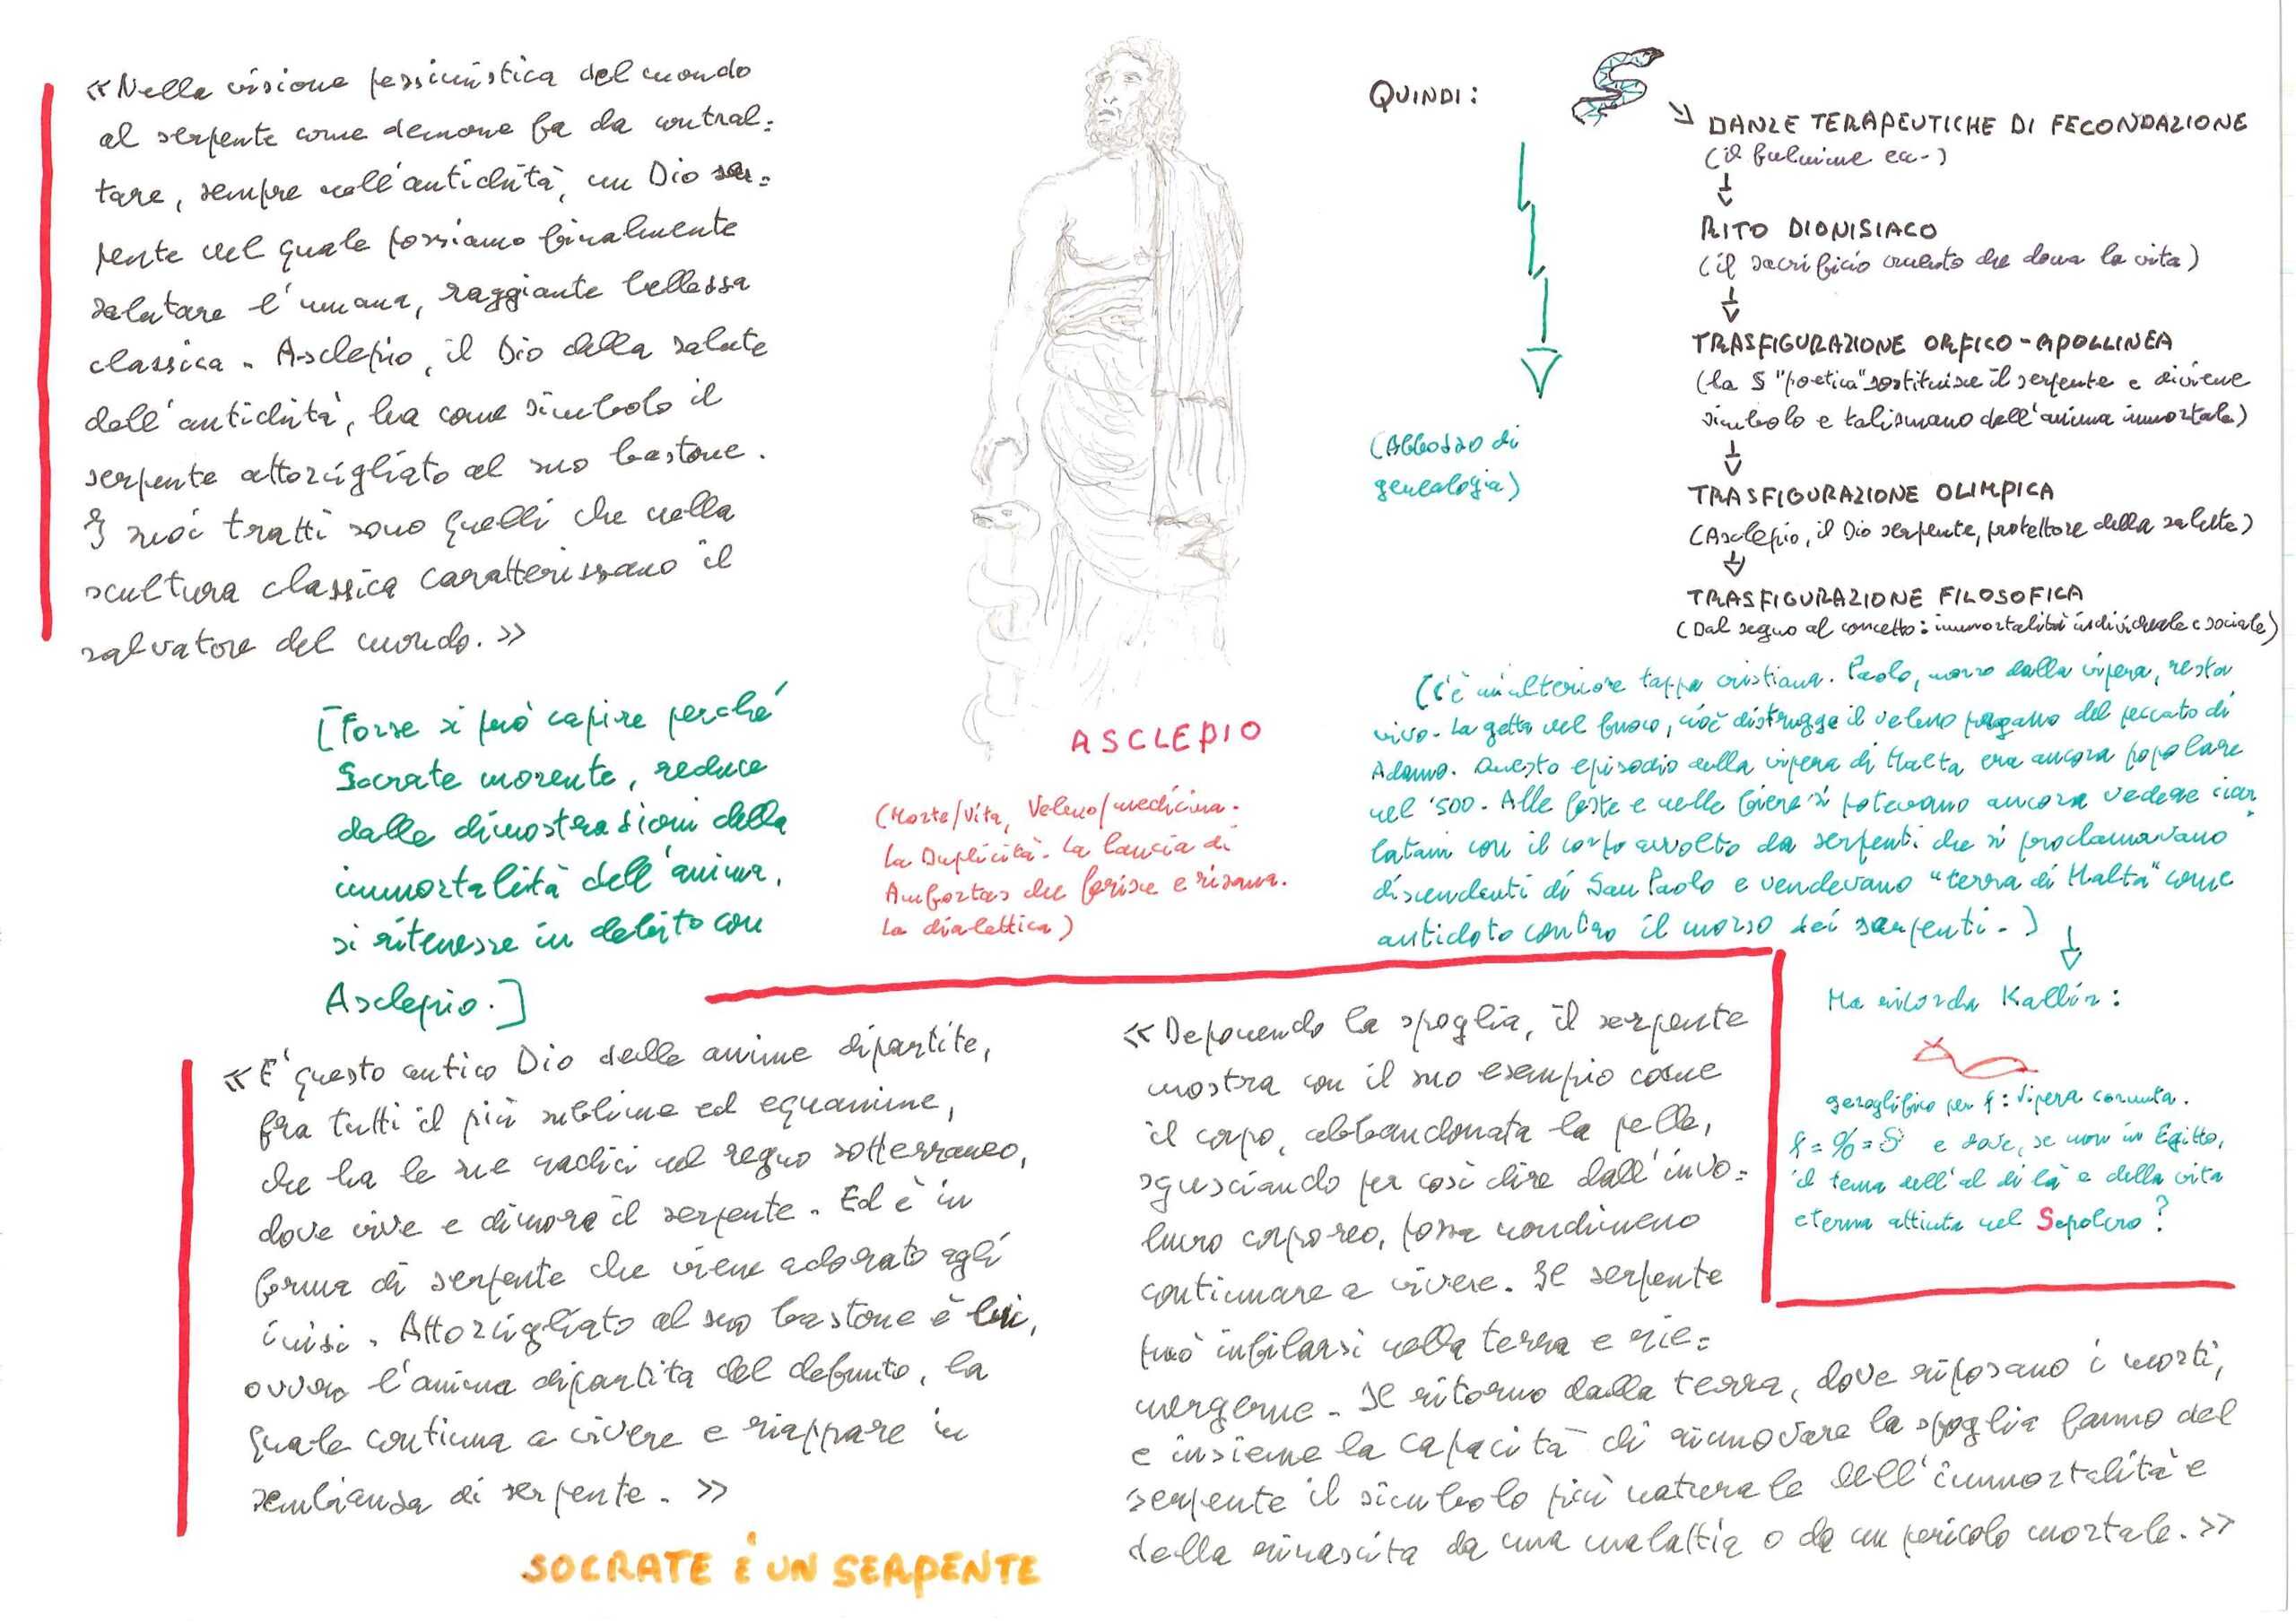 «Nella visione pessimistica del mondo
al serpente come demone fa da contral=
tare, sempre nell'antichità, un Dio ser=
pente nel quale possiamo finalmente
salutare l'umana, raggiante bellezza
classica. Asclepio, il Dio della salute
dell'antichità, ha come simbolo il
serpente attorcigliato al suo bastone.
I suoi tratti sono quelli che nella
scultura classica caratterizzano il
salvatore del mondo.»
[Forse si può capire perché
Socrate morente, reduce
dalle dimostrazioni della
immortalità dell'anima,
si ritenesse in debito con
Asclepio.]
«E' questo antico Dio delle anime dipartite,
fra tutti il più sublime ed equanime,
che ha le sue radici nel regno sotterraneo,
dove vive e dimora il serpente. Ed è in
forma di serpente che viene adorato agli
inizi. Attorcigliato al suo bastone è lui,
ovvero l'anima dipartita del defunto, la
quale continua a vivere e riappare in
sembianza di serpente.»
SOCRATE È UN SERPENTE
ASCLEPIO
(Morte/Vita, Veleno/medicina.
La Duplicità. La lancia di
Amfortas che ferisce e risana.
La dialettica)
QUINDI:
(Abbozzo di
genealogia)
DANZE TERAPEUTICHE DI FECONDAZIONE
(il fulmine ecc.)
RITO DIONISIACO
(il sacrificio cruento che dona la vita)
TRASFIGURAZIONE ORFICO-APOLLINEA
(la S "poetica" sostituisce il serpente e diviene
simbolo e talismano dell'anima immortale)
TRASFIGURAZIONE OLIMPICA
(Asclepio, il Dio serpente, protettore della salute)
TRASFIGURAZIONE FILOSOFICA
(Dal segno al concetto: immortalità individuale e sociale)
(C'è un'ulteriore tappa cristiana. Paolo, morso dalla vipera, resta
vivo. La getta nel fuoco, cioè distrugge il veleno pagano del peccato di
Adamo. Questo episodio della vipera di Malta era ancora popolare
nel '500. Alle feste e nelle fiere si potevano ancora vedere ciar=
latani con il corpo avvolto da serpenti che si proclamavano
discendenti di San Paolo e vendevano "terra di Malta" come
antidoto contro il morso dei serpenti.)
Ma ricorda Kallír:
geroglifico per f: vipera cornuta.
e dove, se non in Egitto,
il tema dell'al di là e della vita
eterna attinta nel Sepolcro?
«Deponendo la spoglia, il serpente
mostra con il suo esempio come
il corpo, abbandonata la pelle,
sgusciando per così dire dall'invo=
lucro corporeo, possa nondimeno
continuare a vivere. Il serpente
può infilarsi nella terra e rie=
mergerne. Il ritorno dalla terra, dove riposano i morti,
e insieme la capacità di rinnovare la spoglia fanno del
serpente il simbolo più naturale dell'immortalità e
della rinascita da una malattia o da un pericolo mortale.»